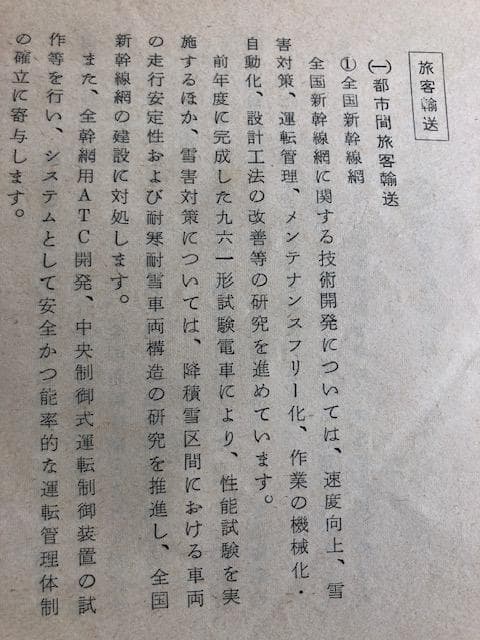 旅客輸送
㈠都市間旅客輸送
①全国新幹線網
全国新幹線網に関する技術開発については、速度向上、雪
害対策、運転管理、メンテナンスフリー化、作業の機械化・
自動化、設計工法の改善等の研究を進めています。
前年度に完成した九六一形試験電車により、性能試験を実
施するほか、雪害対策については、降積雪区間における車両
の走行安定性および耐寒耐雪車両構造の研究を推進し、全国
新幹線網の建設に対処します。
また、全幹網用ATC開発、中央制御式運転制御装置の試
作等を行い、システムとして安全かつ能率的な運転管理体制
の確立に寄与します。